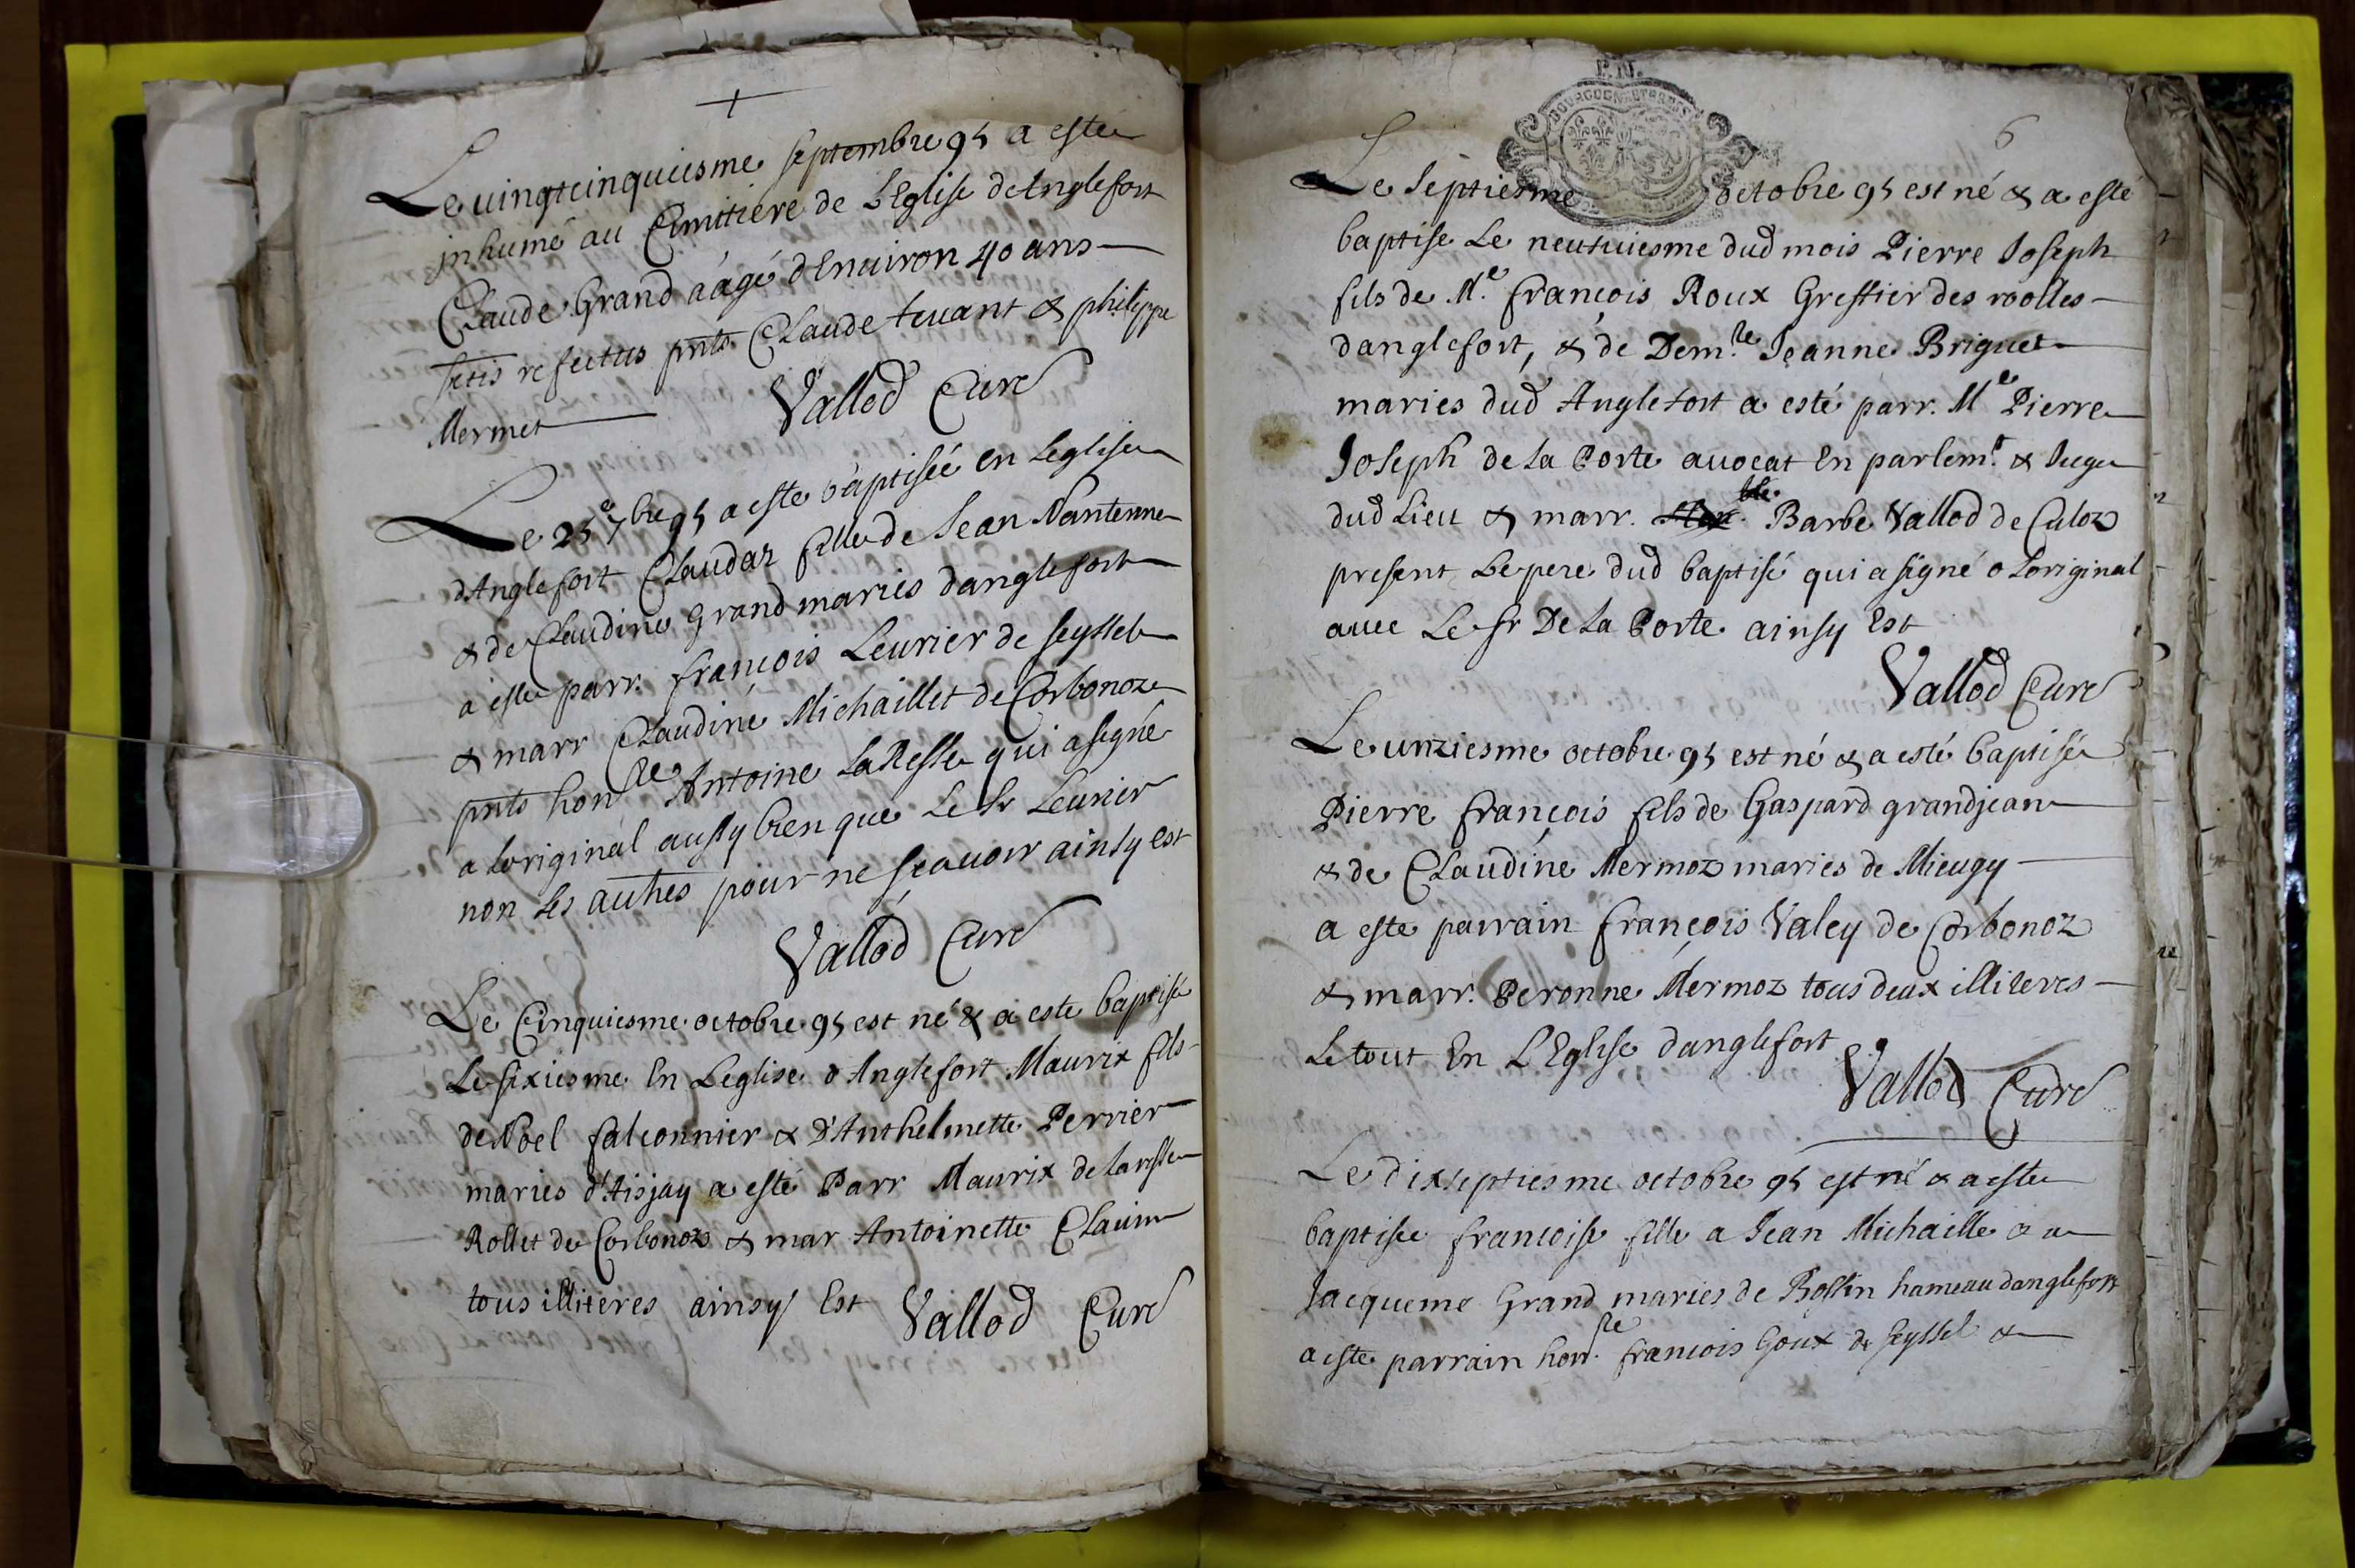 Le vingtcinquiesme septembre 95 a esté
jnhumé au Cimitiere de L'Eglise d'Anglefort
Claude Grand aâgé d'Environ 40 ans
sctis refectus pnts Claude tevant & philippe
Mermet Vallod Curé
Le 25e 7bre 95 a esté baptisée en Leglise
d'Anglefort Claudaz fille de Jean Nantenne
& de Claudine Grand mariés danglefort
a esté parr. françois Leurier de seyssel
& marr Claudine Michaillet de Corbonoz
pnts honble Antoine LaResse qui a signé
a Loriginal aussy bien que Le Sr Leurier
non Les autres pour ne scavoir ainsy est
Vallod Curé
Le Cinquiesme octobre 95 est né & a esté baptisé
Le sixiesme En Leglise d'Anglefort Maurix fils
de Noel falconnier & d'Anthelmette Perrier
mariés d'Aisjay a esté Parr Maurix de laresse
Rollet de Corbonoz & mar Antoinette Claim
tous illiteres ainsy Est Vallod Curé
P.N.
6
Le Septiesme octobre 95 est né & a esté
baptisé Le neufuiesme dud mois Pierre Joseph
fils de Me. françois Roux Greffier des roolles
danglefort, & de Demlle Jeanne Briguet
mariés dud Anglefort a esté parr. Me Pierre
Joseph de La Porte avocat En parlemt. & Juge
dud Lieu & marr. ble. Barbe Vallod de Culoz
present Le pere dud baptisé qui a signé a Loriginal
avec Le Sr De La Porte ainsy Est
Vallod Curé
Le unziesme octobre 95 est né & a esté baptisé
Pierre françois fils de Gaspard grandjean
& de Claudine Mermoz mariés de Mieugy
a esté parrain françois Valey de Corbonoz
& marr. Peronne Mermoz tous deux illiteres
Le tout En L'Eglise danglefort
Vallod Curé
Le dixseptiesme octobre 95 est né & a esté
baptisée francoise fille a Jean Michaille & a
Jacqueme Grand mariés de Bossin hameau danglefort
a esté parrain honble. francois Goux de seyssel &